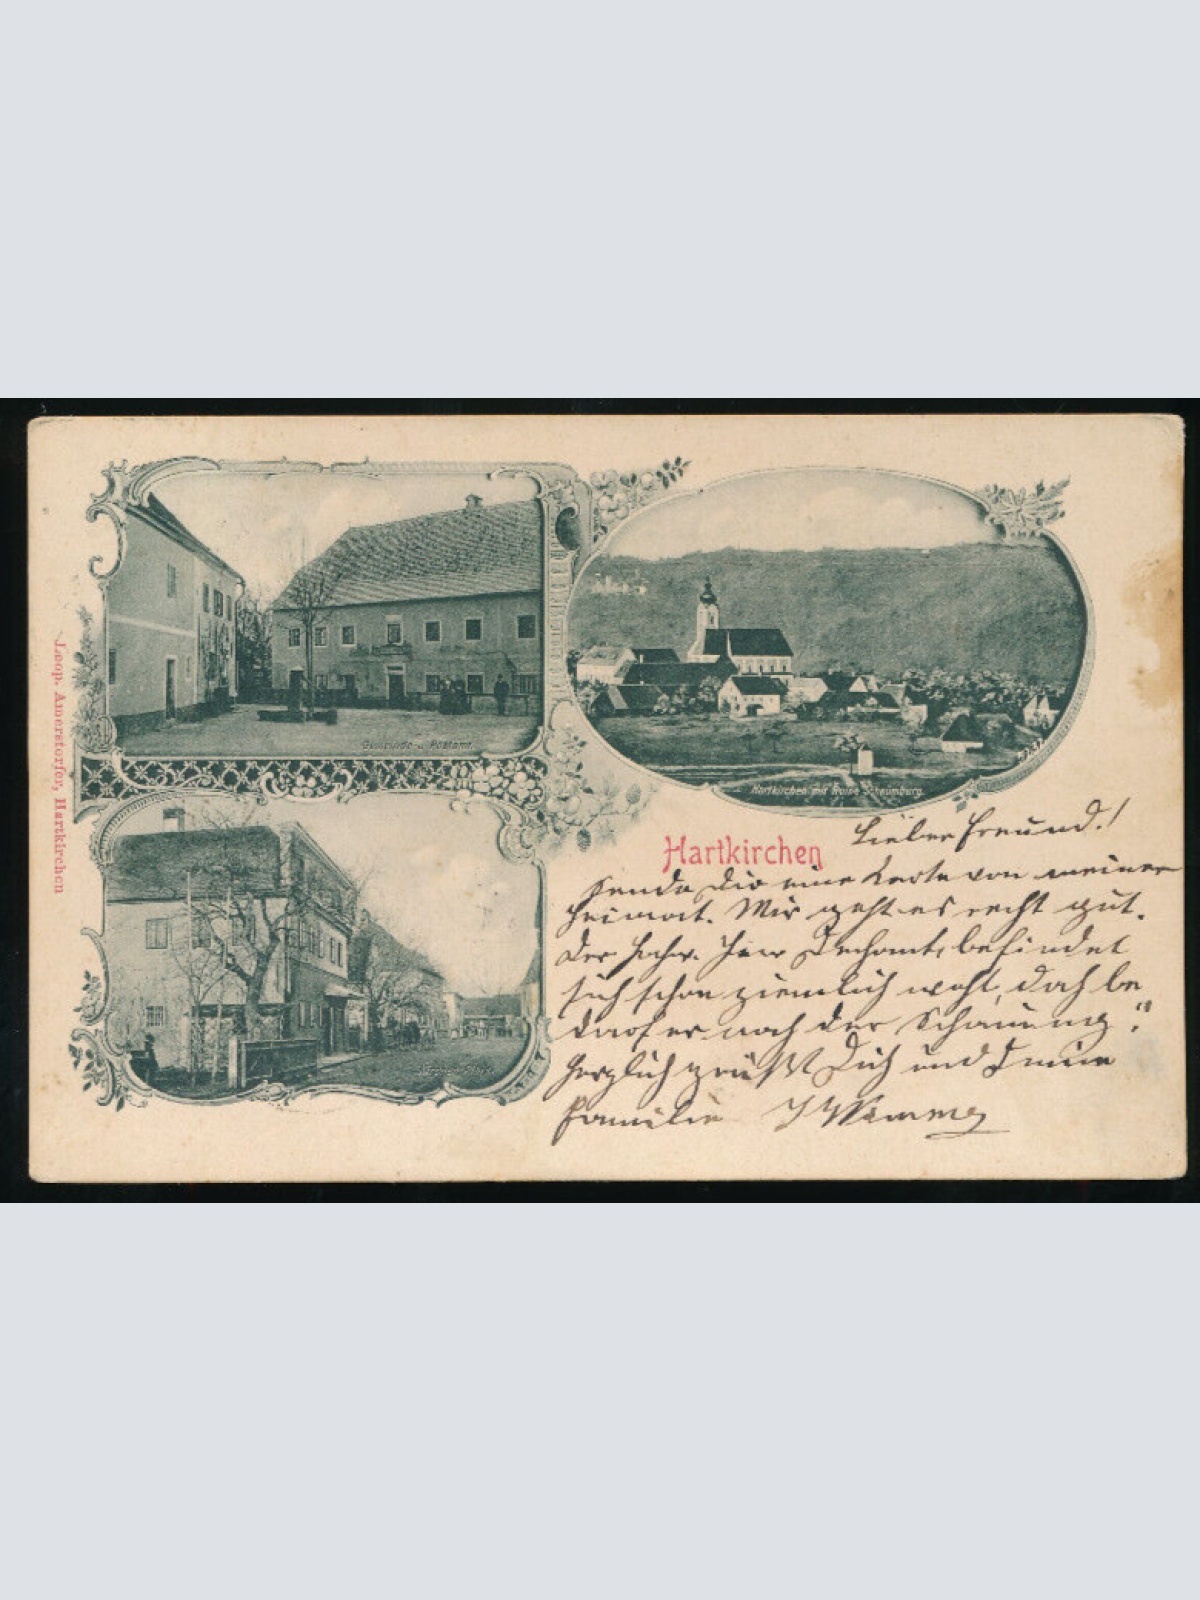 Leop. Amerstorfer, Hartkirchen
Gemeinde u. Postamt.
Hartkirchen mit Ruine Schaumburg.
Hartkirchen
Lieber Freund!
Sende Dir eine Karte von meiner
Heimat. Mir geht es recht gut.
Der Hochw. Herr Dechant befindet
sich schon ziemlich wohl, doch be
darf er noch der Schonung.
Herzlich grüßt Dich und Deine
Familie J